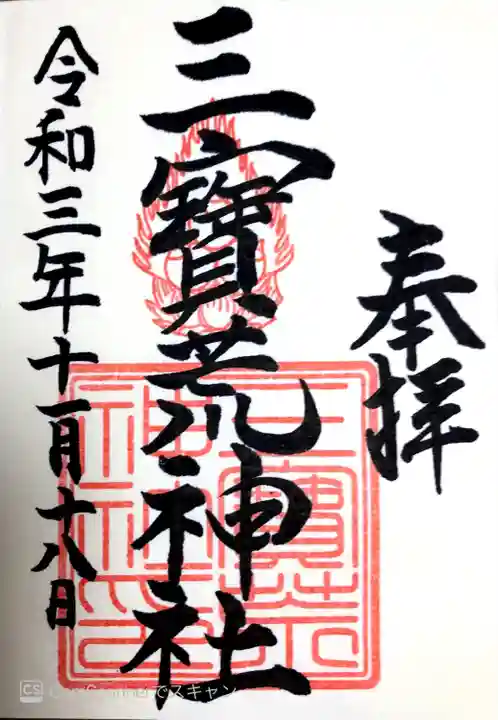 奉拝
三寳荒神社
令和三年十一月十八日
三寳荒
神社印
CS CamScannerでスキャン